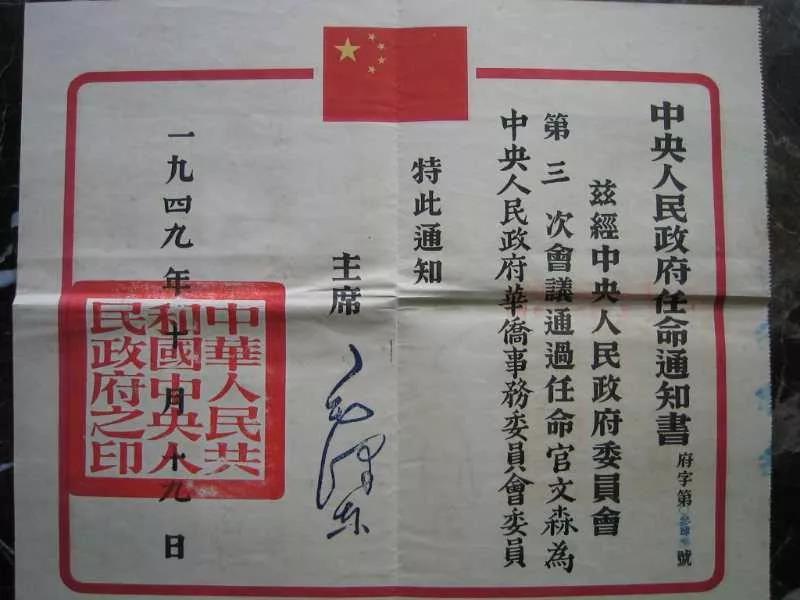 中央人民政府任命通知書
府字第 號
兹經中央人民政府委員會
第三次會議通過任命官文森為
中央人民政府華僑事務委員會委員
特此通知
主席 毛澤東
一九四九年十月十九日
中華人民共
和國中央人
民政府之印